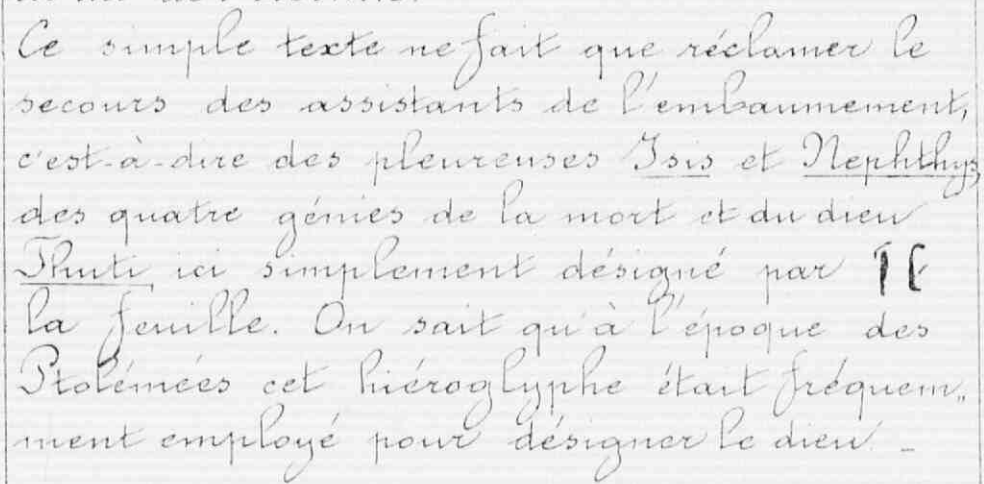 Ce simple texte ne fait que réclamer le
secours des assistants de l'embaumement,
c'est-à-dire des pleureuses Isis et Nephthys,
des quatre génies de la mort et du dieu
Thuti ici simplement désigné par
la feuille. On sait qu'à l'époque des
Ptolémées cet hiéroglyphe était fréquem„
ment employé pour désigner le dieu. -